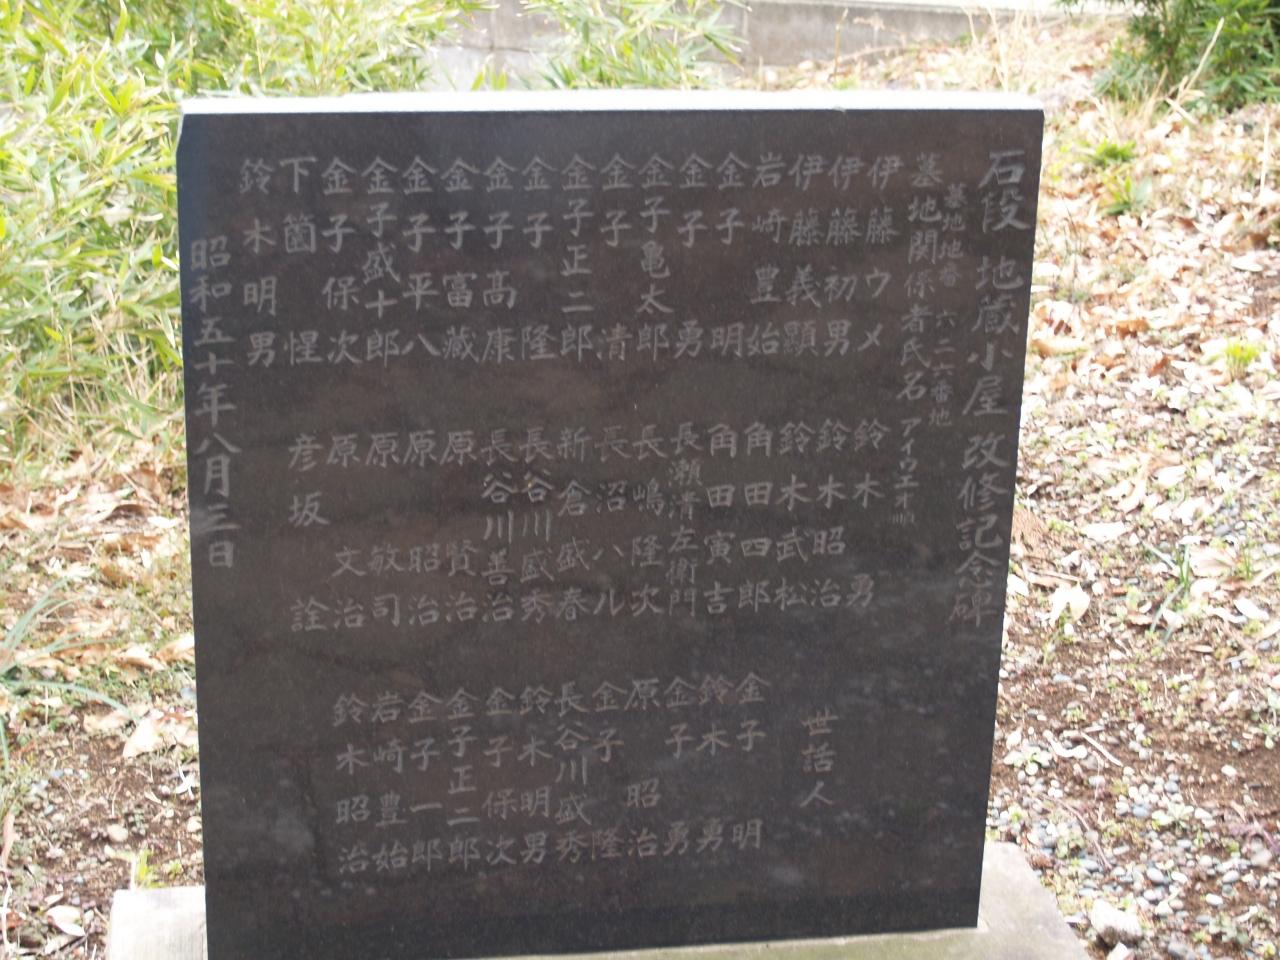 石段 地蔵小屋 改修記念碑
墓地地番 六二六番地
墓地関係者氏名 アイウエオ順
伊藤ウメ
伊藤初男
伊藤義顕
岩崎豊始
金子明
金子勇
金子亀太郎
金子清
金子正二郎
金子隆
金子高康
金子富蔵
金子平八
金子盛十郎
金子保次
下箇惺
鈴木明男
鈴木勇
鈴木昭治
鈴木武松
角田四郎
角田寅吉
長瀬清左衛門
長嶋隆次
長沼ハル
新倉盛春
長谷川盛秀
長谷川善治
原賢治
原昭治
原敏司
原文治
彦坂詮
世話人
金子明
鈴木勇
金子勇
原昭治
金子隆
長谷川盛秀
鈴木明男
金子保次
金子正二郎
金子一郎
岩崎豊始
鈴木昭治
昭和五十年八月三日